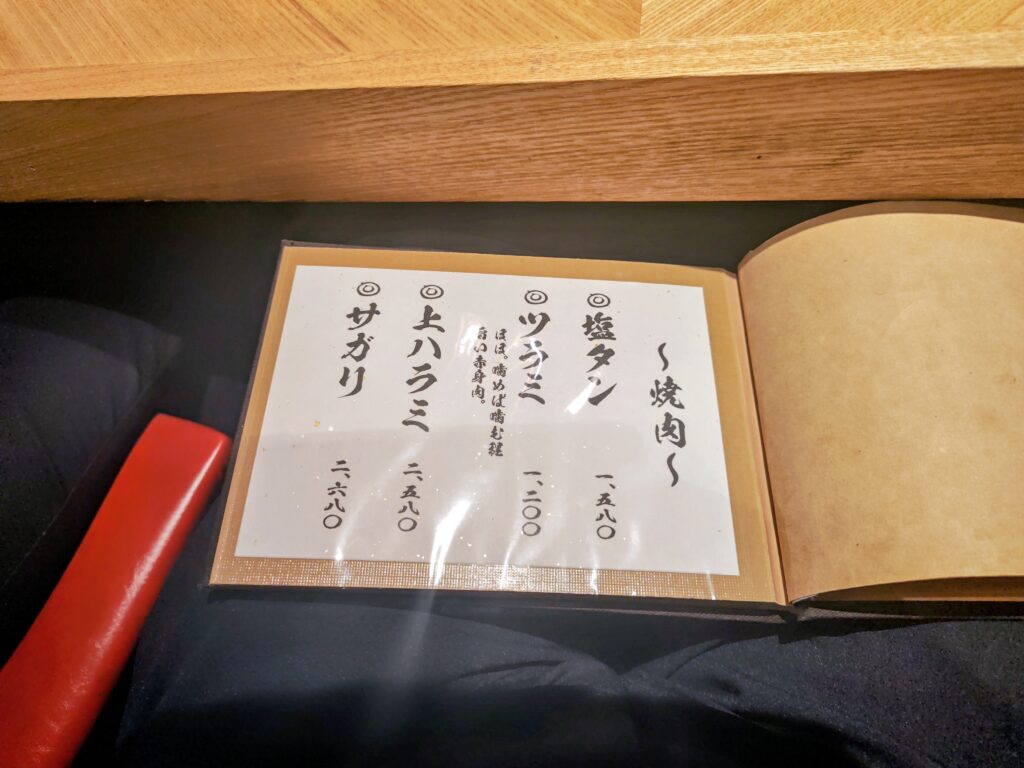 〜焼肉〜
◎塩タン 一、五八〇
◎ツラミ 一、二〇〇
ほほ。噛めば噛む程
旨い赤身肉。
◎上ハラミ 二、五八〇
◎サガリ 二、六八〇